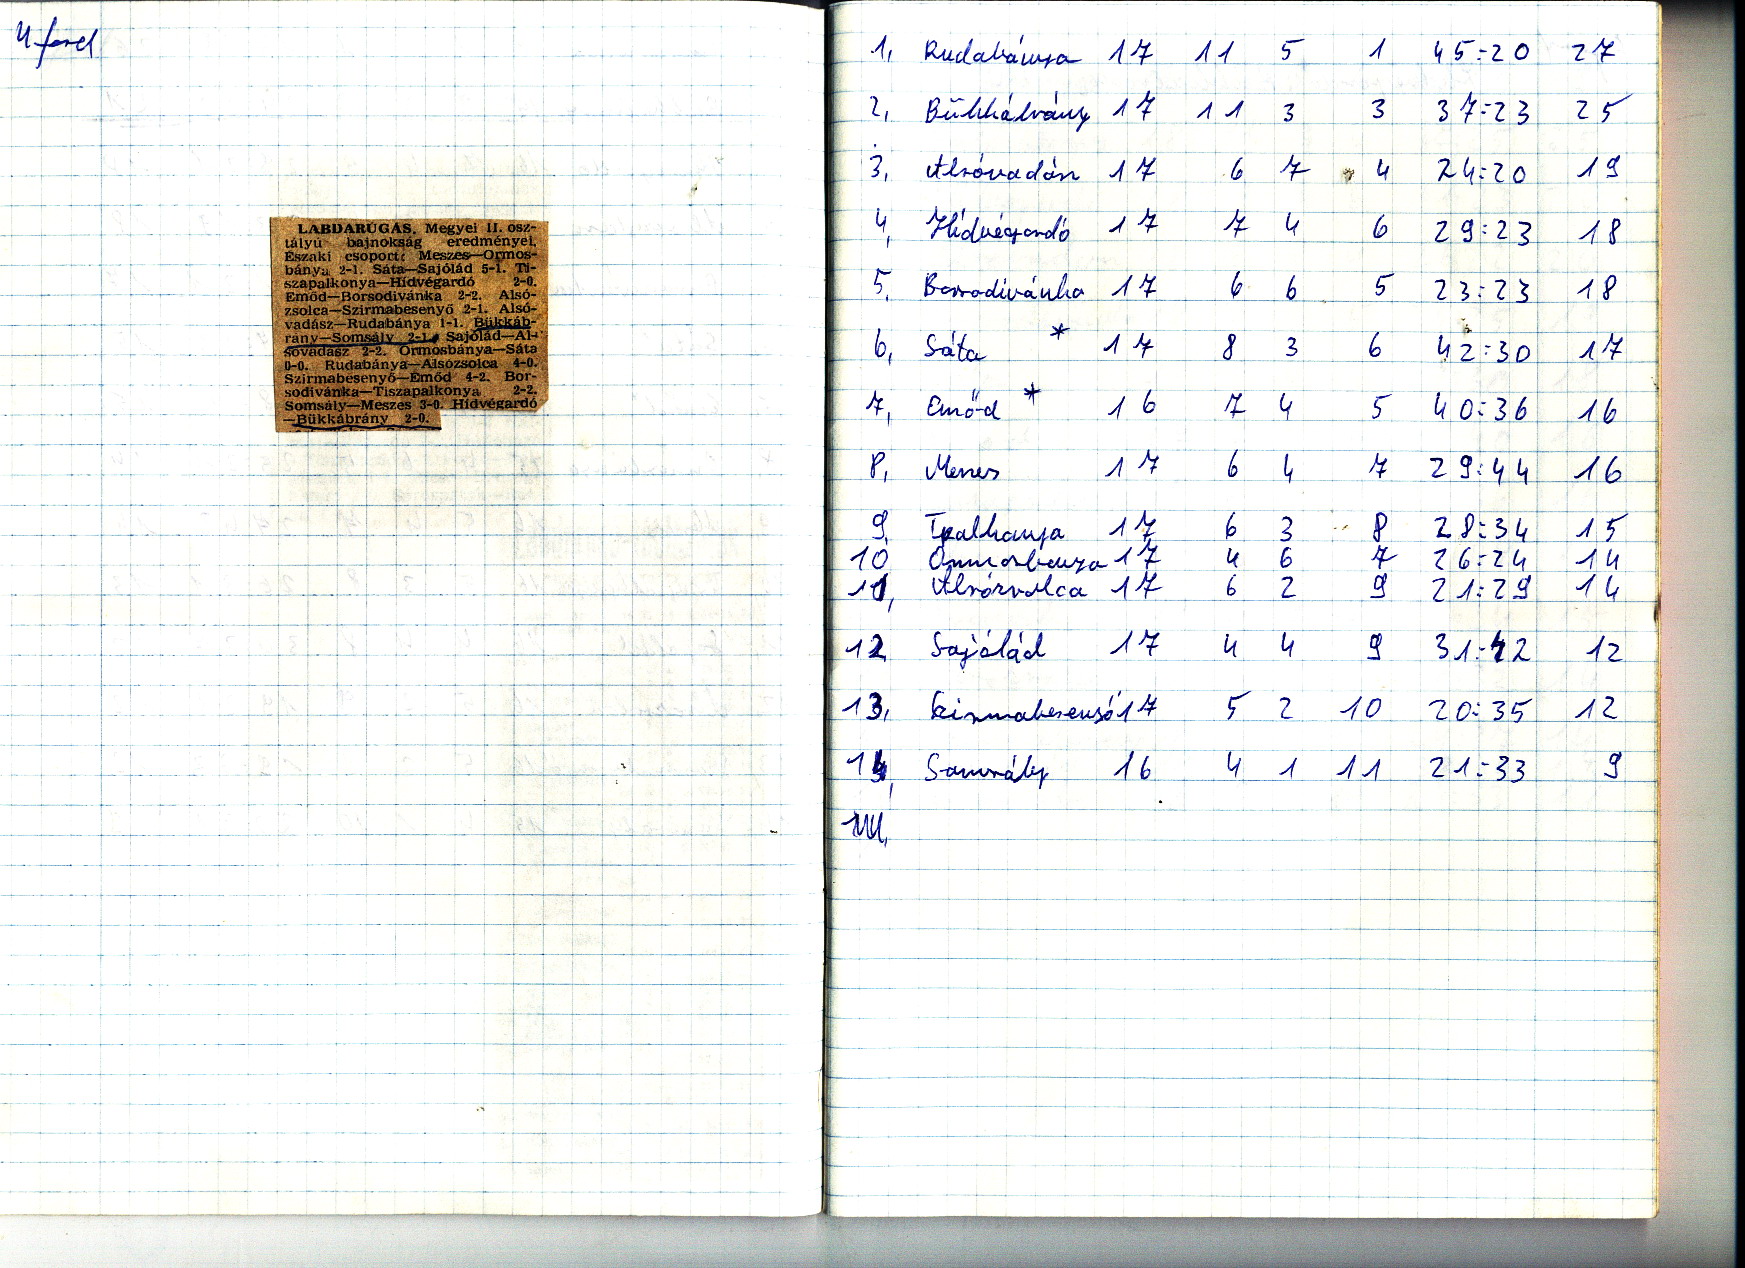 4 ford
LABDARÚGÁS. Megyei II. osz-
tályú bajnokság eredményei.
Északi csoport: Meszes—Ormos-
bánya 2-1. Sáta—Sajólád 5-1. Ti-
szapalkonya—Hídvégardó 2-0.
Emőd—Borsodivánka 2-2. Alsó-
zsolca—Szirmabesenyő 2-1. Alsó-
vadász—Rudabánya 1-1. Bükkáb-
rány—Somsály 2-1. Sajólád—Al-
sóvadász 2-2. Ormosbánya—Sáta
0-0. Rudabánya—Alsózsolca 4-0.
Szirmabesenyő—Emőd 4-2. Bor-
sodivánka—Tiszapalkonya 2-2.
Somsály—Meszes 3-0. Hídvégardó
—Bükkábrány 2-0.
1, Rudabánya 17 11 5 1 45:20 27
2, Bükkábrány 17 11 3 3 37:23 25
3, Alsóvadász 17 6 7 4 24:20 19
4, Hídvégardó 17 7 4 6 29:23 18
5, Borsodivánka 17 6 6 5 23:23 18
6, Sáta * 17 8 3 6 42:30 17
7, Emőd * 16 7 4 5 40:36 16
8, Meszes 17 6 4 7 29:44 16
9, Tpalkonya 17 6 3 8 28:34 15
10 Ormosbanya 17 4 6 7 26:24 14
11, Alsózsolca 17 6 2 9 21:29 14
12 Sajólád 17 4 4 9 31:42 12
13, Szirmabesenyő 17 5 2 10 20:35 12
14, Somsály 16 4 1 11 21:33 9